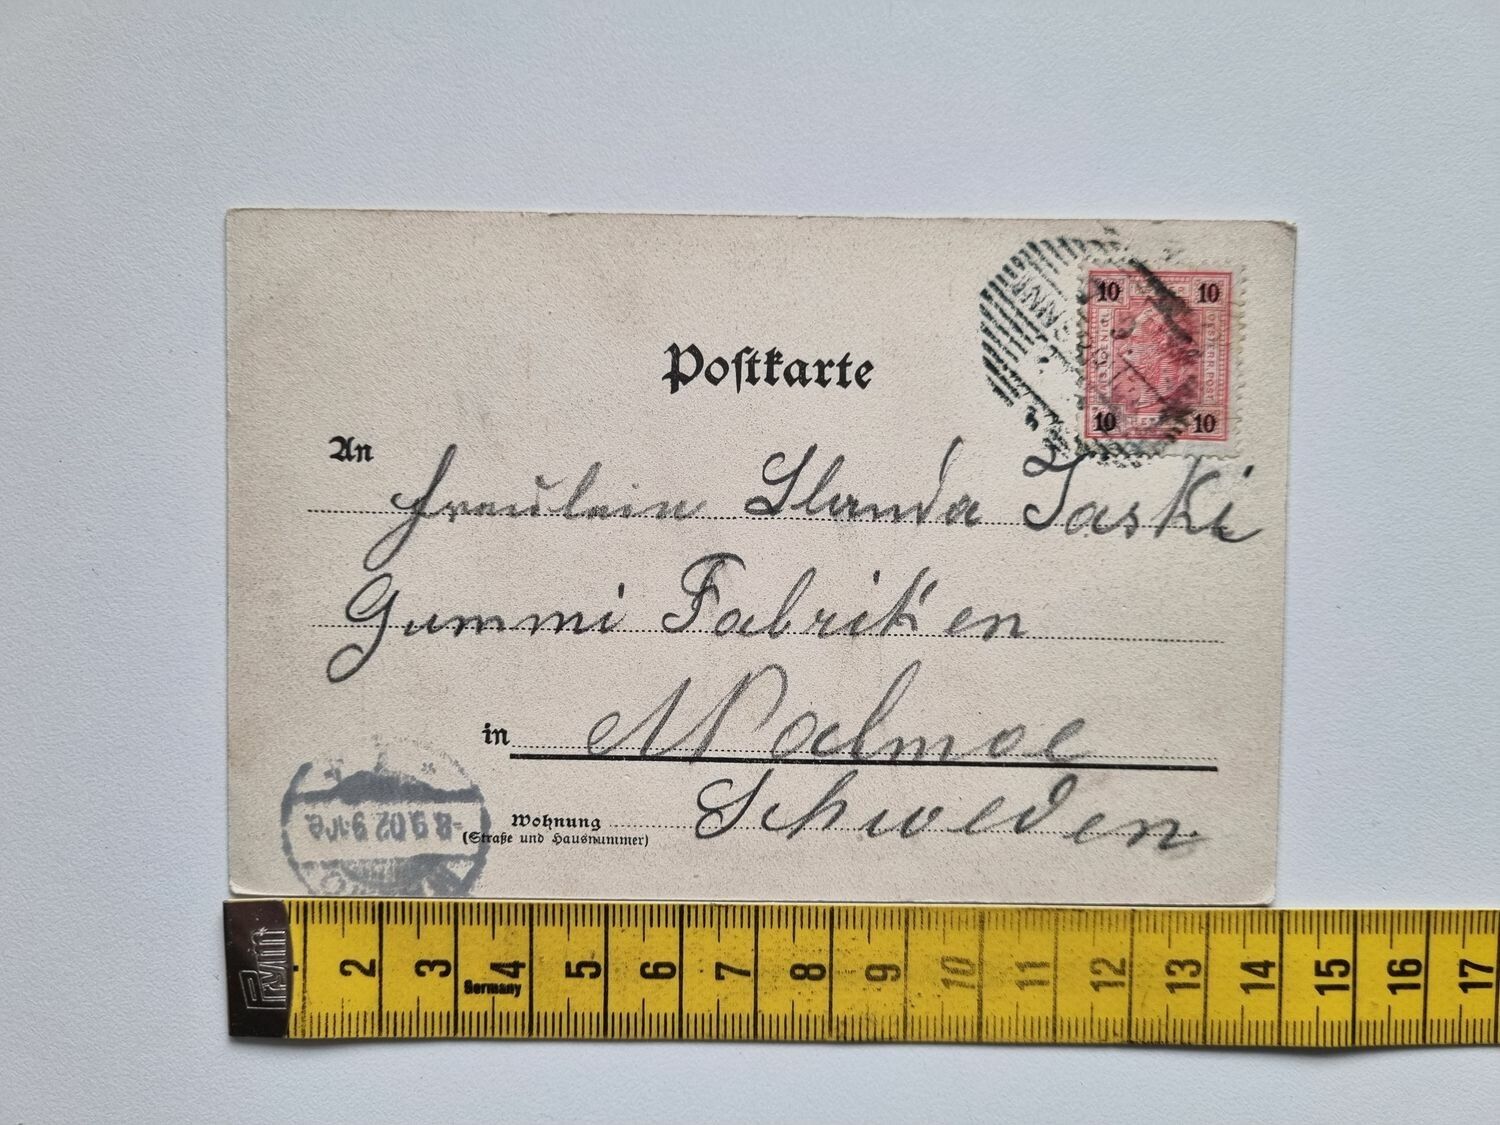 Postkarte
10 10
10 10
OESTERR. POST
An Fräulein Slanda Jaski
Gummi Fabriken
in Malmoe
Schweden
Wohnung
(Straße und Hausnummer)
-8.9.02.9-10
2 3 4 5 6 7 8 9 10 11 12 13 14 15 16 17
Germany